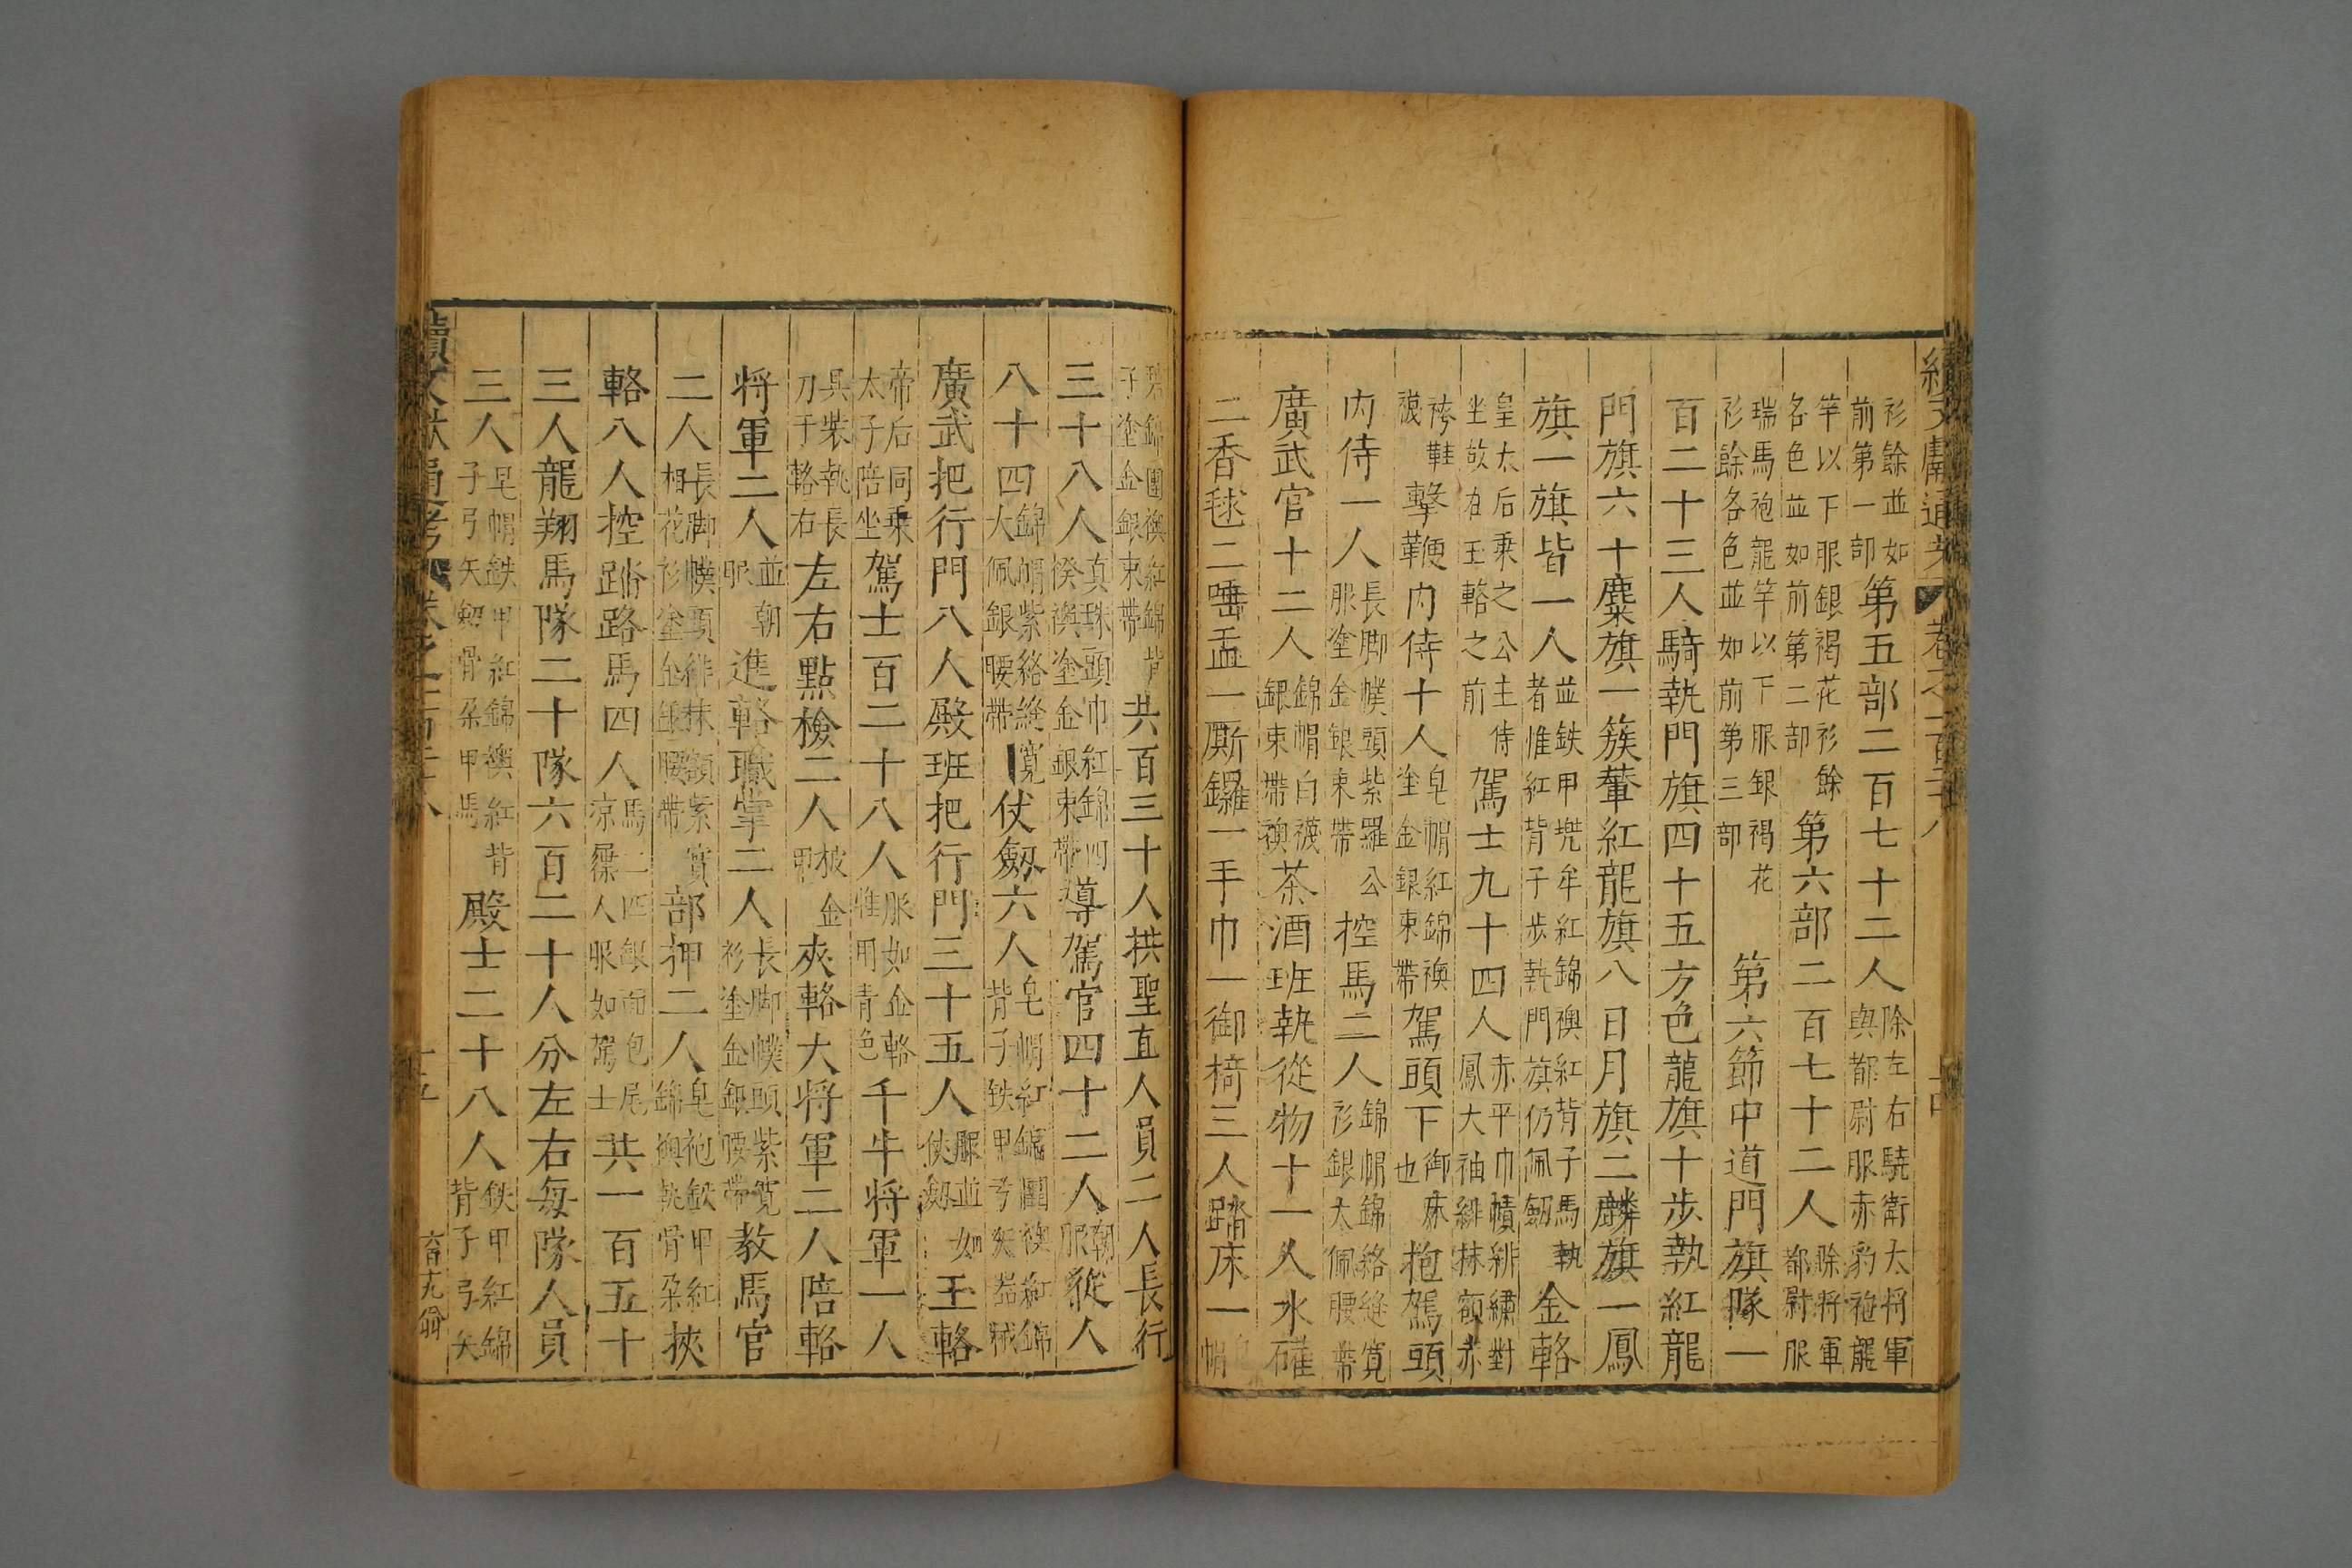 續文獻通考 卷之一百二十八 十四
衫餘並如前第一部第五部二百七十二人除左右驍衛大將軍與都尉服赤豹袍龍
竿以下服銀褐花衫餘各色並如前第二部第六部二百七十二人除將軍都尉服
瑞馬袍龍竿以下服銀褐花衫餘各色並如前第三部第六節中道門旗隊一
百二十三人騎執門旗四十五方色龍旗十步執紅龍
門旗六十麋旗一簇輦紅龍旗八日月旗二麟旗一鳳
旗一旗皆一人並鉄甲兠牟紅錦襖紅背子馬執者惟紅背子步執門旗仍佩劔金輅
皇太后乘之公主侍坐故在玉輅之前駕士九十四人赤平巾幘緋繡對鳳大袖緋抹額赤
袴鞋襪擊鞭内侍十人皂帽紅錦襖塗金銀束帶駕頭下御床也抱駕頭
内侍一人長脚幞頭紫羅公服塗金銀束帶控馬二人錦帽錦絡縫寬衫銀大佩腰帶
廣武官十二人錦帽白襪銀束帶襖茶酒班執從物十一人水礶
二香毬二唾盂一厮鑼一手巾一御椅三人踏床一帽
碧錦團襖紅錦背子塗金銀束帶共百三十人拱聖直人員二人長行
三十八人真珠頭巾紅錦四䙆襖塗金銀束帶導駕官四十二人朝服從人
八十四錦帽紫絡縫寬大佩銀腰帶仗劔六人皂帽紅錦團襖紅錦背子鉄甲弓矢器械
廣武把行門八人殿班把行門三十五人服並如使劔玉輅
帝后同乘太子陪坐駕士百二十八人服如金輅惟用青色千牛將軍一人
具裝執長刀于輅右左右點檢二人披金甲夾輅大將軍二人陪輅
將軍二人並朝服進輅職掌二人長脚幞頭紫寬衫塗金銀腰帶教馬官
二人長脚幞頭緋抹額紫寬相花衫塗金銀腰帶部押二人皂袍鉄甲紅錦襖執骨朶挾
輅八人控踏路馬四人馬二匹銀面包尾凉屜人服如駕士共一百五十
三人龍翔馬隊二十隊六百二十人分左右每隊人員
三人皂帽鉄甲紅錦襖紅背子弓矢劔骨朶甲馬殿士二十八人鉄甲紅錦背子弓矢
續文獻通考 卷之一百二十八 十五